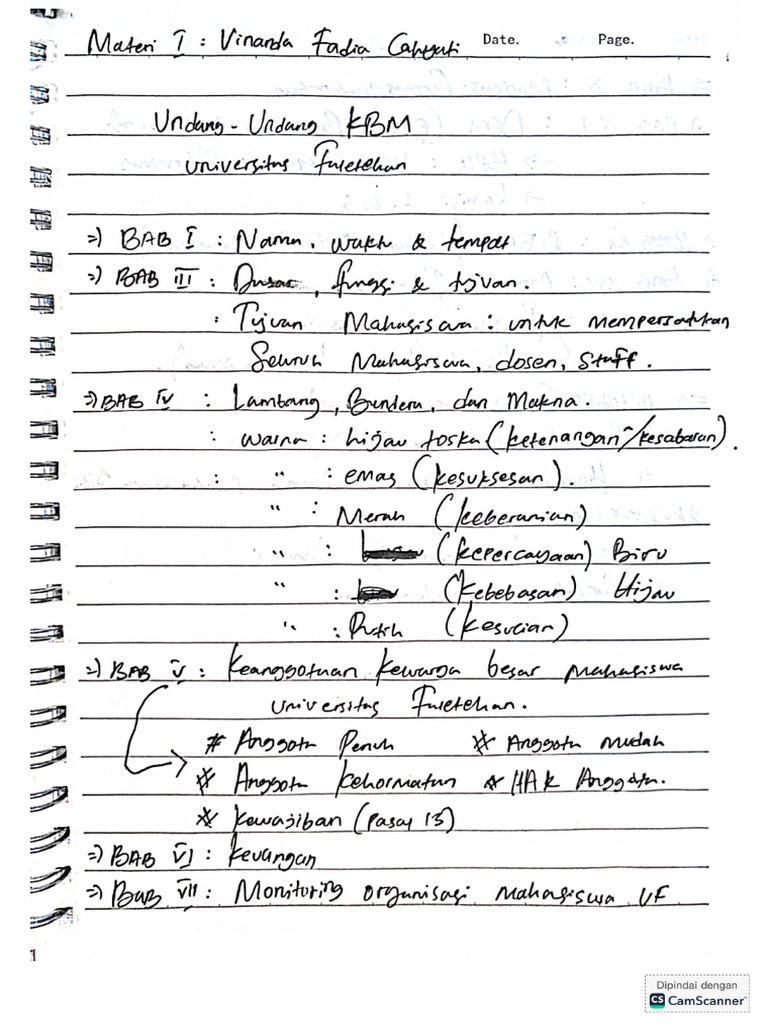 Materi I : Vinanda Fadia Cahyati Date. Page.
Undang - Undang KBM
Universitas Faletehan
=) BAB I : Nama, waktu & tempat
=) BAB III : Dasar, fungsi & tujuan.
: Tujuan Mahasiswa : untuk mempersatukan
Seluruh Mahasiswa, dosen, Staff.
=) BAB IV : Lambang, Bendera, dan Makna.
: warna : hijau toska (ketenangan/kesabaran).
: " : emas (kesuksesan).
" : Merah (keberanian)
" : (kepercayaan) Biru
" : (kebebasan) Hijau
" : Putih (kesucian)
=) BAB V : Keanggotaan kewarga besar Mahasiswa
Universitas Faletehan.
# Anggota Penuh # Anggota mudah
# Anggota kehormatan * HAK Anggota.
* kewajiban (Pasal 13)
=) BAB VI : keuangan
=) BAB VII : Monitoring organisasi mahasiswa UF
1
Dipindai dengan
CS CamScanner